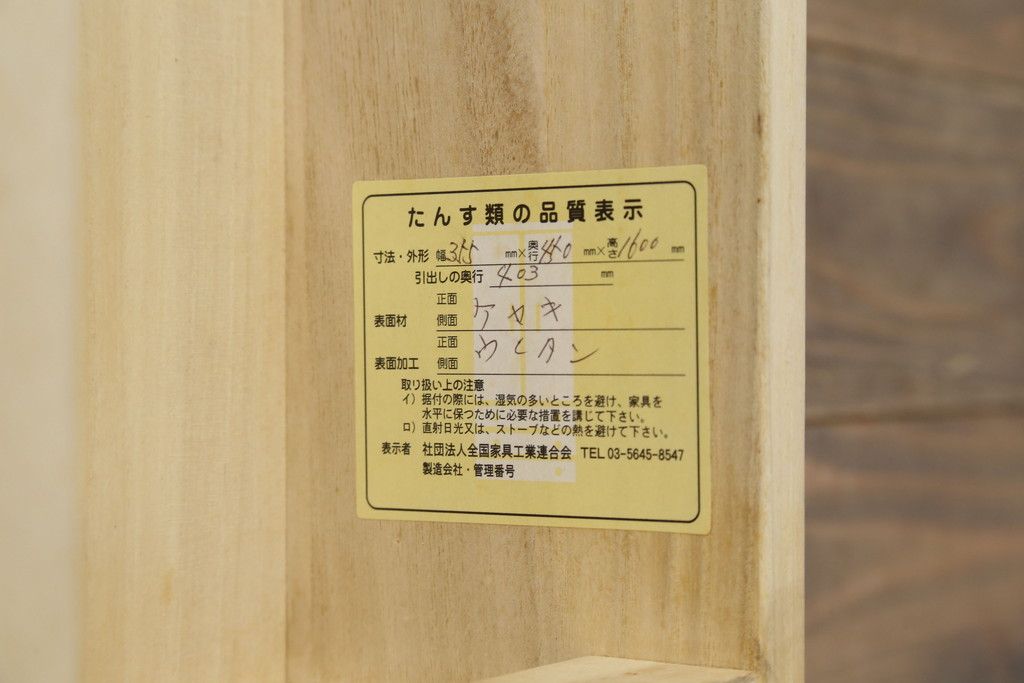 たんす類の品質表示
寸法・外形 幅355mm×奥行450mm×高さ1600mm
引出しの奥行 403 mm
表面材 正面 側面 ケヤキ
表面加工 正面 側面 ウレタン
取り扱い上の注意
イ）据付の際には、湿気の多いところを避け、家具を
水平に保つために必要な措置を講じて下さい。
ロ）直射日光又は、ストーブなどの熱を避けて下さい。
表示者 社団法人全国家具工業連合会 TEL 03-5645-8547
製造会社・管理番号